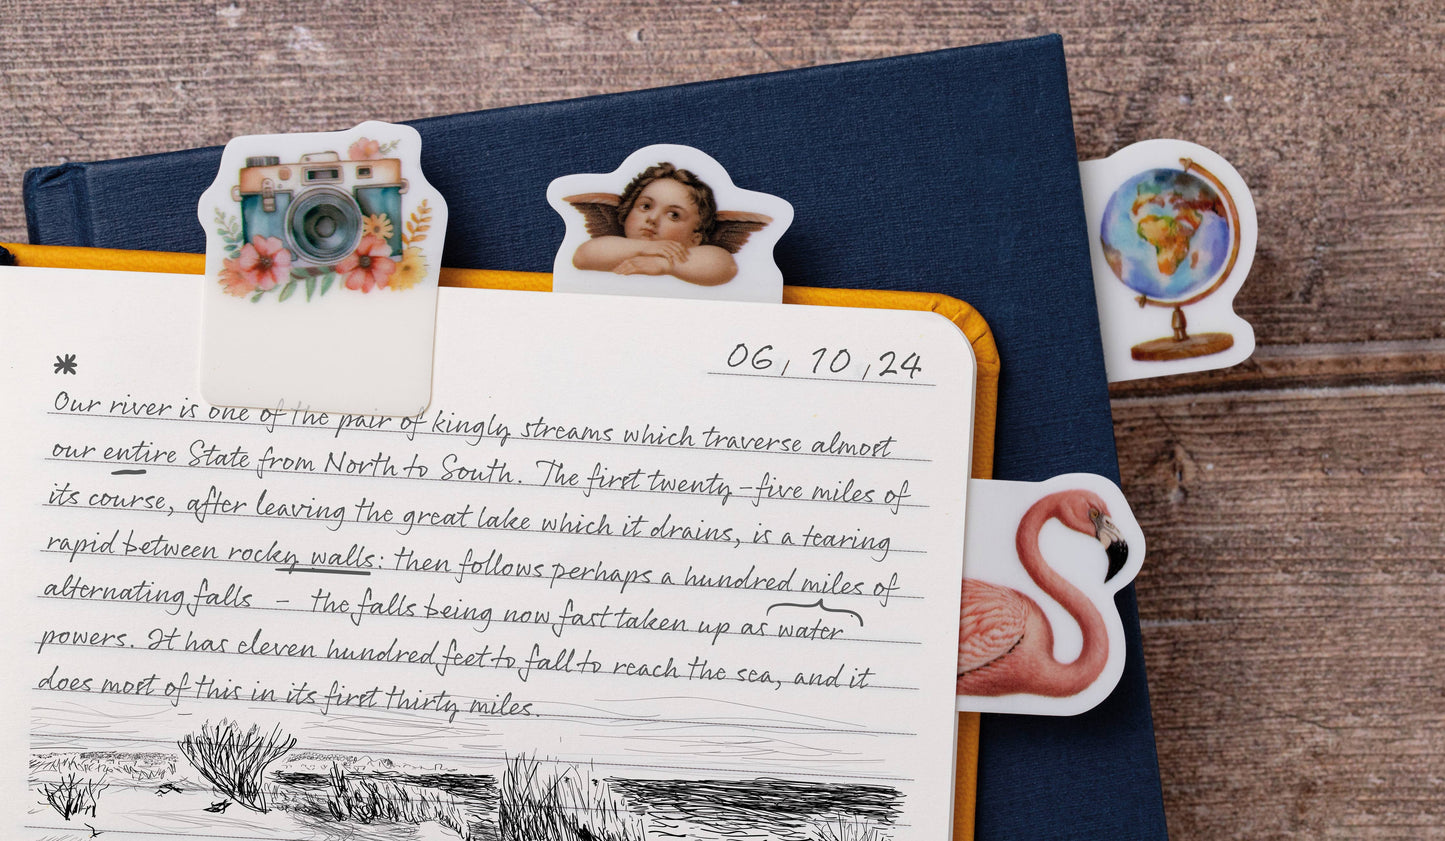 06, 10, 24
*
Our river is one of the pair of kingly streams which traverse almost
our entire State from North to South. The first twenty-five miles of
its course, after leaving the great lake which it drains, is a tearing
rapid between rocky walls: then follows perhaps a hundred miles of
alternating falls – the falls being now fast taken up as water
powers. It has eleven hundred feet to fall to reach the sea, and it
does most of this in its first thirty miles.